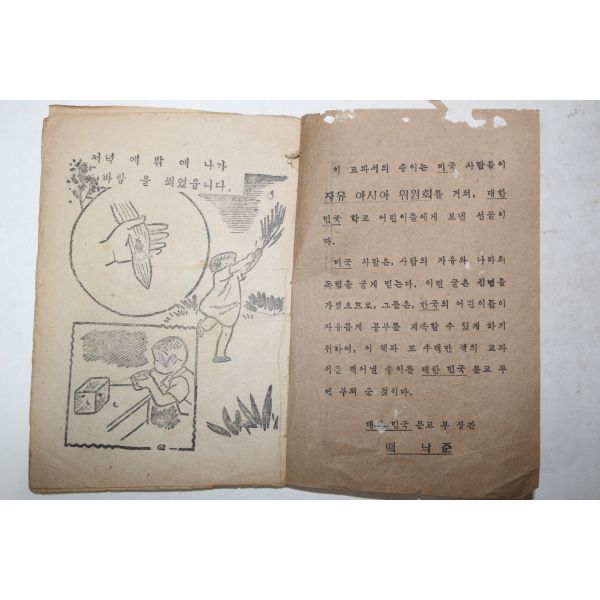 저녁 에 밖 에 나가
바람 을 쐬었읍니다.
62
이 교과서의 종이는 미국 사람들이
자유 아시아 위원회를 거쳐, 대한
민국 학교 어린이들에게 보낸 선물이
다.
미국 사람은, 사람의 자유와 나라의
독립을 굳게 믿는다. 이런 굳은 신념을
가졌으므로, 그들은, 한국의 어린이들이
자유롭게 공부를 계속할 수 있게 하기
위하여, 이 책과 또 수백만 책의 교과
서를 찍어낼 종이를 대한 민국 문교 부
에 부쳐 준 것이다.
대한 민국 문교 부 장관
백 낙 준